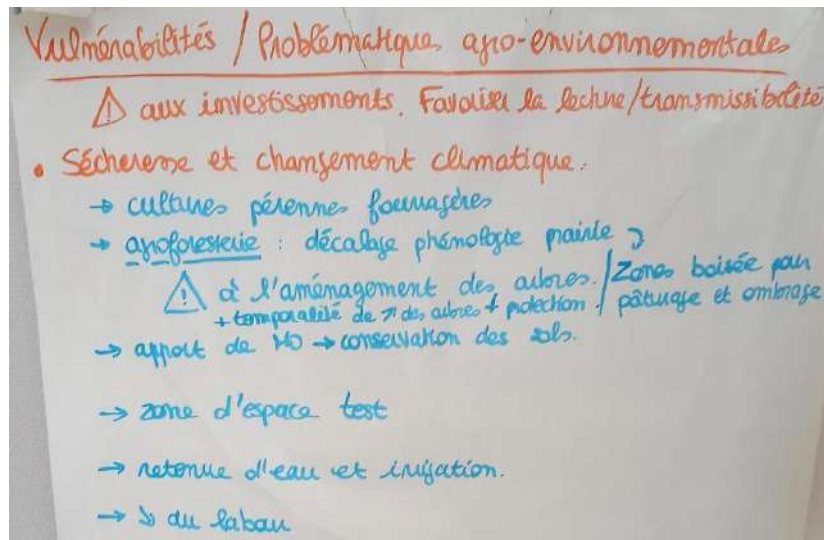 Vulnérabilités / Problématiques agro-environnementales
⚠ aux investissements. Favoriser la lecture/transmissibilité
• Sécheresse et changement climatique.
→ cultures pérennes fourragères
→ agroforesterie : décalage phénologie prairie
⚠ à l'aménagement des arbres. / Zones boisée pour
+ temporalité de ↗ des arbres + protection. / pâturage et ombrage
→ apport de MO → conservation des sols.
→ zone d'espace test
→ retenue d'eau et irrigation.
→ ↘ du labour